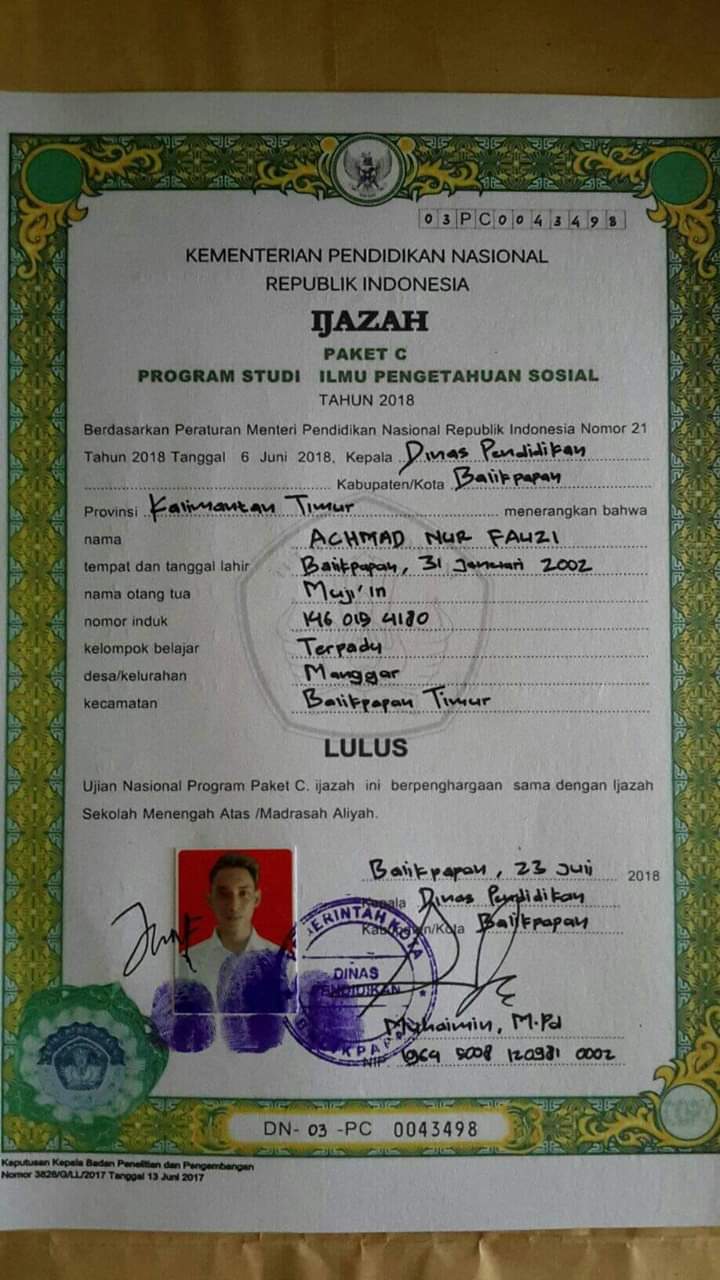 03PC0043498
KEMENTERIAN PENDIDIKAN NASIONAL
REPUBLIK INDONESIA
IJAZAH
PAKET C
PROGRAM STUDI ILMU PENGETAHUAN SOSIAL
TAHUN 2018
Berdasarkan Peraturan Menteri Pendidikan Nasional Republik Indonesia Nomor 21
Tahun 2018 Tanggal 6 Juni 2018, Kepala Dinas Pendidikan
Kabupaten/Kota Balikpapan
Provinsi Kalimantan Timur menerangkan bahwa
nama ACHMAD NUR FAUZI
tempat dan tanggal lahir Balikpapan, 31 Januari 2002
nama otang tua Muji'in
nomor induk 146 019 4180
kelompok belajar Terpadu
desa/kelurahan Manggar
kecamatan Balikpapan Timur
LULUS
Ujian Nasional Program Paket C. ijazah ini berpenghargaan sama dengan Ijazah
Sekolah Menengah Atas /Madrasah Aliyah.
Balikpapan, 23 Juli 2018
Kepala Dinas Pendidikan
Kabupaten/Kota Balikpapan
PEMERINTAH KOTA
DINAS
PENDIDIKAN
BALIKPAPAN
Muhaimin, M.Pd
NIP. 1969 5008 120981 0002
DN- 03 -PC 0043498
Keputusan Kepala Badan Penelitian dan Pengembangan
Nomor 3826/G/LL/2017 Tanggal 13 Juni 2017